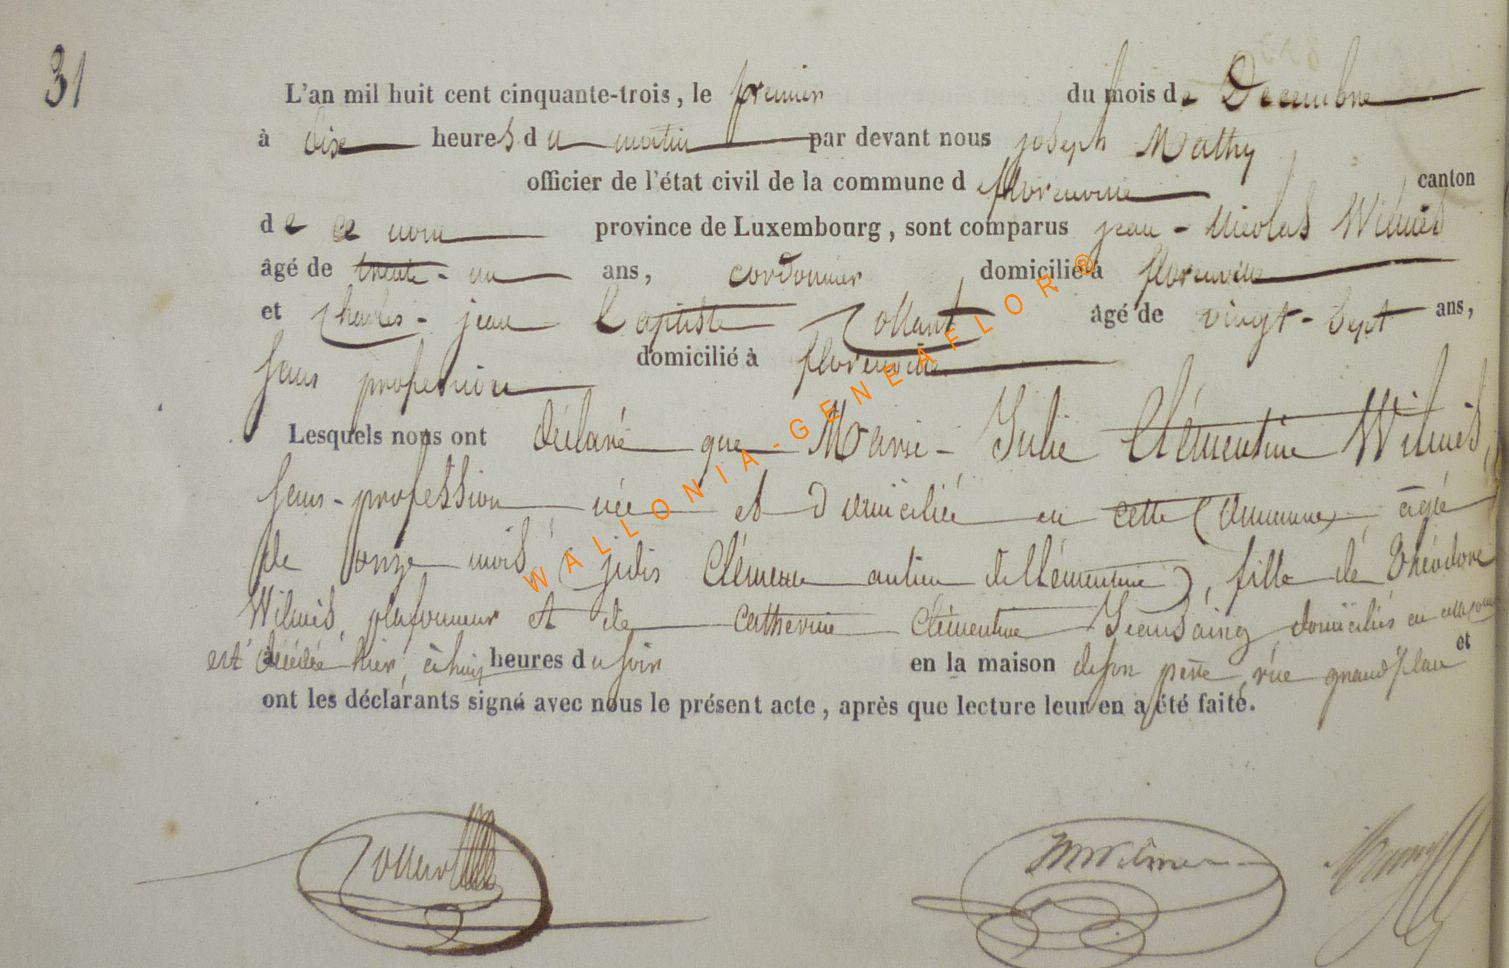 31
L'an mil huit cent cinquante-trois, le premier du mois de Decembre
à dix heures du matin par devant nous joseph Mathy
officier de l'état civil de la commune d florenville canton
de ce nom province de Luxembourg, sont comparus jean-Nicolas Wilmès
âgé de trente-un ans, cordonnier domicilié à florenville
et Charles-jean Baptiste Collant âgé de vingt-Sept ans,
Sans profession domicilié à florenville
Lesquels nous ont déclaré que Marie-Julie Clémentine Wilmès,
Sans-profession née et domiciliée en cette Commune, âgée
de onze mois, (jidis Clémence au lieu de Clémentine), fille de Théodore
Wilmès, plafonneur et de Catherine Clémentine domiciliés en
est décédée hier, à huit heures du soir en la maison de son père, rue grand'place et
ont les déclarants signé avec nous le présent acte, après que lecture leur en a été faite.
WALLONIA-GENEAFLOR®
Collant
Wilmes